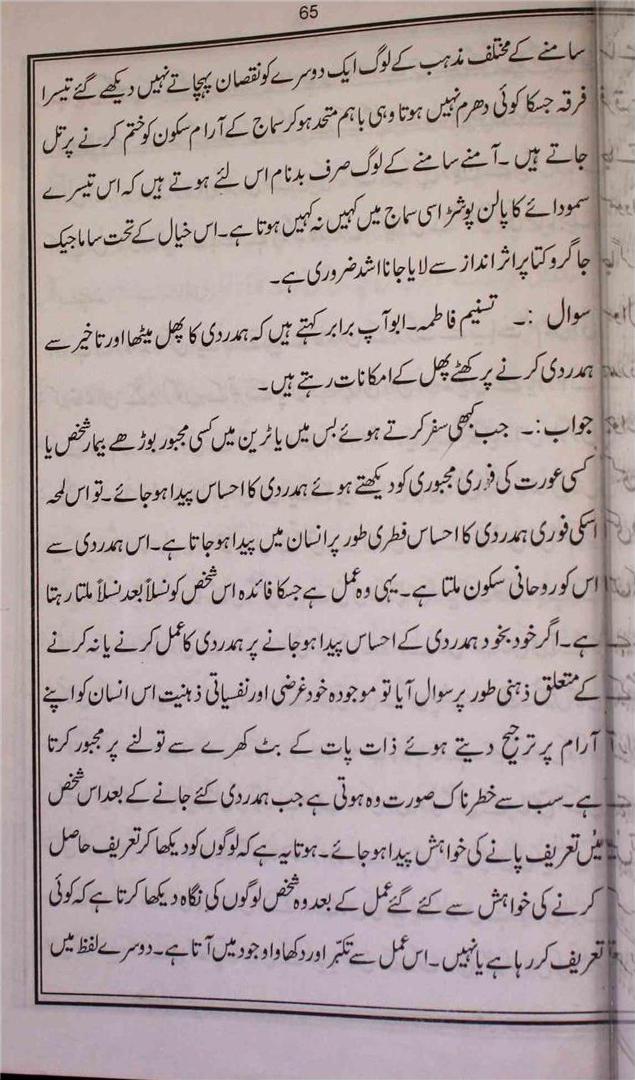 65
سامنے کے مختلف مذہب کے لوگ ایک دوسرے کو نقصان پہچاتے نہیں دیکھے گئے تیسرا
فرقہ جسکا کوئی دھرم نہیں ہوتا وہی باہم متحد ہو کر سماج کے آرام سکون کو ختم کرنے پر تل
جاتے ہیں ۔ آمنے سامنے کے لوگ صرف بدنام اس لئے ہوتے ہیں کہ اس تیسرے
سمودائے کا پالن پوشڑ اسی سماج میں کہیں نہ کہیں ہوتا ہے۔ اس خیال کے تحت ساماجیک
جاگروکتا پر اثر انداز سے لایا جانا اشد ضروری ہے۔
سوال :۔ تسنیم فاطمہ۔ ابو آپ برابر کہتے ہیں کہ ہمدردی کا پھل میٹھا اور تاخیر سے
ہمدردی کرنے پر کھٹے پھل کے امکانات رہتے ہیں۔
جواب :۔ جب کبھی سفر کرتے ہوئے بس میں یا ٹرین میں کسی مجبور بوڑھے بیمار شخص یا
کسی عورت کی فوری مجبوری کو دیکھتے ہوئے ہمدردی کا احساس پیدا ہو جائے۔ تو اس لمحہ
اسکی فوری ہمدردی کا احساس فطری طور پر انسان میں پیدا ہو جاتا ہے۔ اس ہمدردی سے
اس کو روحانی سکون ملتا ہے۔ یہی وہ عمل ہے جسکا فائدہ اس شخص کو نسلاً بعد نسلاً ملتا رہتا
ہے۔ اگر خود بخود ہمدردی کے احساس پیدا ہو جانے پر ہمدردی کا عمل کرنے یا نہ کرنے
کے متعلق ذہنی طور پر سوال آیا تو موجودہ خود غرضی اور نفسیاتی ذہنیت اس انسان کو اپنے
آرام پر ترجیح دیتے ہوئے ذات پات کے بٹ کھرے سے تولنے پر مجبور کرتا
ہے۔ سب سے خطرناک صورت وہ ہوتی ہے جب ہمدردی کئے جانے کے بعد اس شخص
میں تعریف پانے کی خواہش پیدا ہو جائے۔ ہوتا یہ ہے کہ لوگوں کو دیکھا کر تعریف حاصل
کرنے کی خواہش سے کئے گئے عمل کے بعد وہ شخص لوگوں کی نگاہ دیکھا کرتا ہے کہ کوئی
تعریف کر رہا ہے یا نہیں۔ اس عمل سے تکبّر اور دکھاوا وجود میں آتا ہے۔ دوسرے لفظ میں